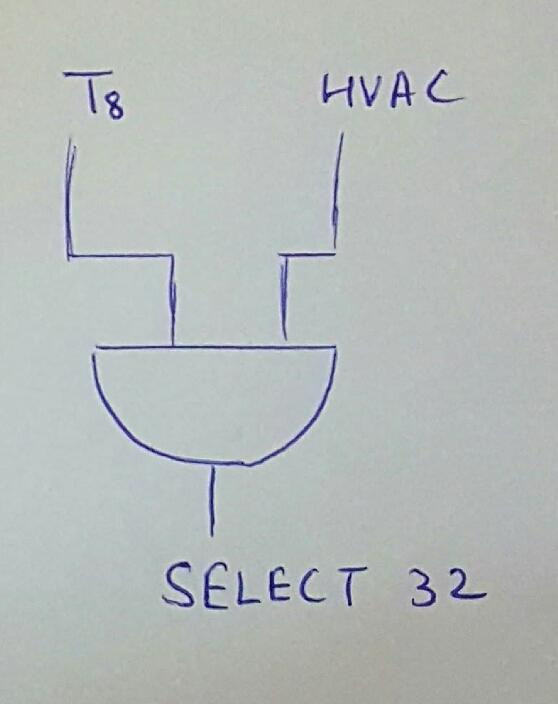 T8 HVAC
SELECT 32